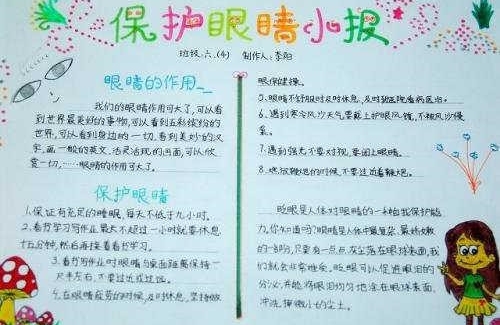 保护眼睛小报
班级：六、(4) 制作人：李阳
眼睛的作用
我们的眼睛作用可大了，可以看
到世界最美好的事物，可以看到五彩缤纷的
世界，可以看到身边的一切，看到美妙的汉
字，画一般的英文，活灵活现的画面，可以欣
赏一切，……眼睛的作用可大了。
保护眼睛
1.保证有充足的睡眠，每天不低于九小时。
2.看行学习写作业最大不超过一小时就要休息
十五分钟，然后再接着看行学习。
3.看行写作业时眼睛与桌面距离保持一
尺半左右，不要过近或过远。
4.在眼睛疲劳的时候，及时休息，坚持做
眼保健操。
5.眼睛不舒服时及时休息，及时到医院看病医治。
6.遇到寒冷风沙天气要戴上护眼风镜，不被风沙侵
袭。
7.遇到强光不要对视，要闭上眼睛。
8.燃放鞭炮的时候，不要过近看鞭炮。
眨眼是人体对眼睛的一种自我保护能
力，你知道吗？眼睛是人体中最复杂、最精致
的一部分，只要有一点点灰尘落在眼球表面，我
们就会非常难受。眨眼可以促进眼泪的
分泌，并能将眼泪均匀地涂在眼球表面，
冲洗掉微小的尘土。